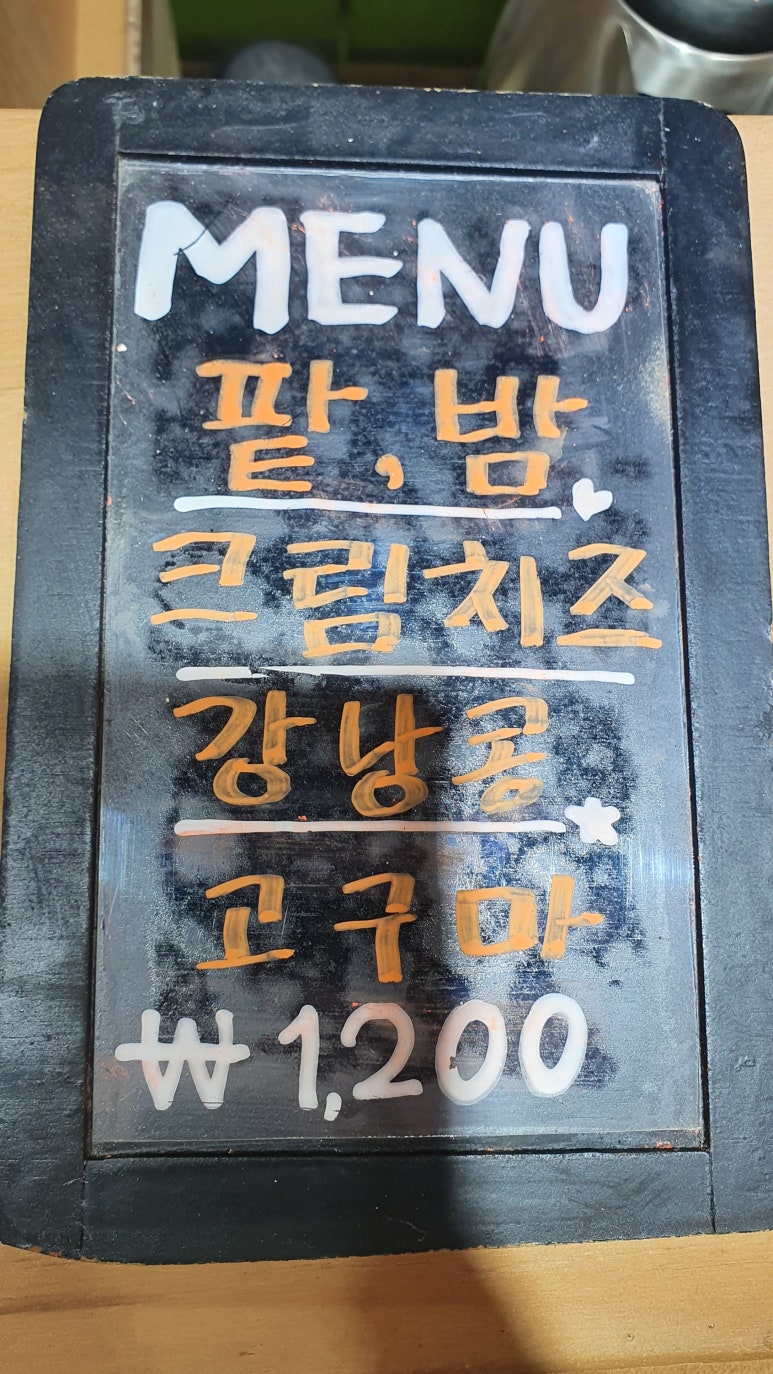 MENU
팥, 밤
크림치즈
강낭콩
고구마
₩ 1,200